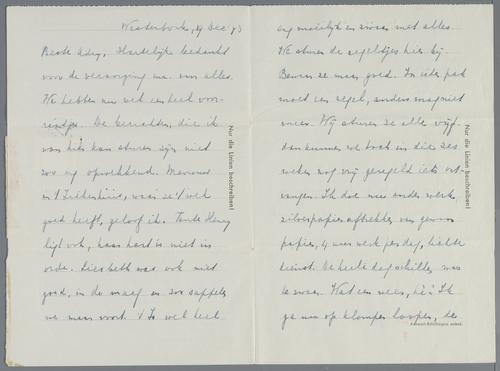 Westerbork, 29 Dec '43
Beste Adry, Hartelijk bedankt
voor de verzorging enz. van alles.
We hebben nu wel een heel voor-
raadje. De berichten, die ik
van hier kan sturen zijn niet
zoo erg opwekkend. Marianne
in 't Ziekenhuis, waar ze 't wel
goed heeft, geloof ik. Tante Henny
ligt ook, haar hart is niet in
orde. Liesbeth was ook niet
goed, in de maag en zoo sappelen
we maar voort. 't Is wel heel
Nur die Linien beschreiben!
erg moeilijk en zwaar met alles.
We sturen de zegeltjes hier bij.
Bewaar ze maar goed. In ieder pak
moet een zegel, anders mag niet
meer. Wij sturen ze alle vijf-
dan kunnen we toch in die zes
weken nog vrij geregeld iets ont-
vangen. Ik doe nu ander werk,
zilverpapier aftrekken van gewoon
papier, 4 uur werk per dag, lichte
dienst. De heele dag schillen was
te zwaar. Wat een mens, hè! Ik
ga nu op klompen loopen, de
Nur die Linien beschreiben!